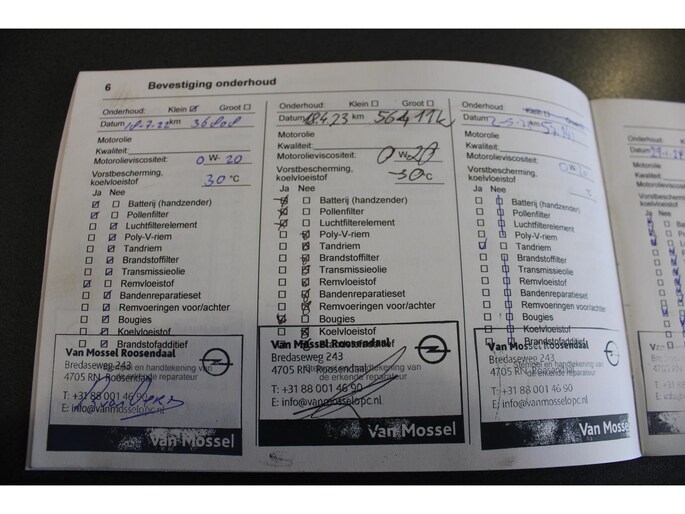 6 Bevestiging onderhoud
Onderhoud: Klein Groot
Datum 18-7-22 km 36808
Motorolie
Kwaliteit:
Motorolieviscositeit: 0 W- 20
Vorstbescherming,
koelvloeistof 30 °C
Ja Nee
Batterij (handzender)
Pollenfilter
Luchtfilterelement
Poly-V-riem
Tandriem
Brandstoffilter
Transmissieolie
Remvloeistof
Bandenreparatieset
Remvoeringen voor/achter
Bougies
Koelvloeistof
Brandstofadditief
Van Mossel Roosendaal
Bredaseweg 243
Stempel en handtekening van
4705 RN Roosendaal
de erkende reparateur
T: +31 88 001 46 90
E: info@vanmosselopc.nl
Van Mossel
Onderhoud: Klein Groot
Datum 18.4.23 km 56411k
Motorolie
Kwaliteit:
Motorolieviscositeit: 0 W- 20
Vorstbescherming,
koelvloeistof -30 °C
Ja Nee
Batterij (handzender)
Pollenfilter
Luchtfilterelement
Poly-V-riem
Tandriem
Brandstoffilter
Transmissieolie
Remvloeistof
Bandenreparatieset
Remvoeringen voor/achter
Bougies
Koelvloeistof
Brandstofadditief
Van Mossel Roosendaal
Bredaseweg 243
Stempel en handtekening van
4705 RN Roosendaal
de erkende reparateur
T: +31 88 001 46 90
E: info@vanmosselopc.nl
Van Mossel
Onderhoud: Klein Groot
Datum km
Motorolie
Kwaliteit:
Motorolieviscositeit: 0 W-
Vorstbescherming,
koelvloeistof °C
Ja Nee
Batterij (handzender)
Pollenfilter
Luchtfilterelement
Poly-V-riem
Tandriem
Brandstoffilter
Transmissieolie
Remvloeistof
Bandenreparatieset
Remvoeringen voor/achter
Bougies
Koelvloeistof
Brandstofadditief
Van Mossel Roosendaal
Bredaseweg 243
Stempel en handtekening van
4705 RN Roosendaal
de erkende reparateur
T: +31 88 001 46 90
E: info@vanmosselopc.nl
Van Mossel
Onderhoud:
Datum
Motorolie
Kwaliteit:
Motorolieviscosite
Vorstbescherming
koelvloeistof
Ja Nee